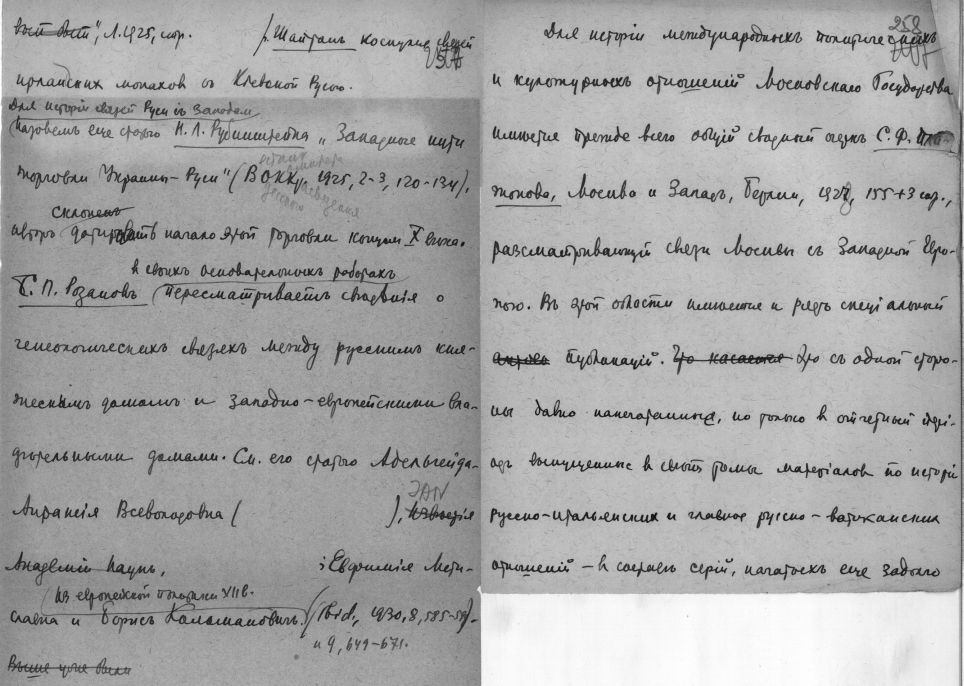 ", Л. 1925, стр. Шайтанъ коснулся связей
ирландских монаховъ съ Кіевской Русью.
Для исторіи связей Руси съ Западомъ
назовемъ еще статью Н. Л. Рубинштейна „Западные пути
торговли Украины-Руси" ( 1925, 2-3, 120-134),
склоненъ
авторъ датировать начало этой торговли концом X века.
въ своихъ основательныхъ работахъ
П. Розановъ пересматриваетъ сведенія о
генеологическихъ связяхъ между русскимъ кня-
жескимъ домамъ и западно-европейскими вла-
детельными домами. См. его статью Адельгейда-
IAN
Апраксія Всеволодовна ( ), Известія
Академіи Наукъ, ; Евфимія
изъ европейской политики XII в.
славна и Борисъ Коломановичъ. (Ibid., 1930, 8, 585-
и 9, 649-671.
Выше уже были
258
Для исторіи международныхъ политических
и культурныхъ отношеній Московскаго Государства
имеется прежде всего общій сводный очерк С. Ф. Пла-
тонова, Москва и Западъ, Берлин, 155+3 стр.,
разсматривающій связи Москвы съ Западной Евро-
пою. Въ этой области имеются и рядъ спеціальный
публикацій. Что касается Это съ одной сторо-
ны давно напечатанные, но только в отчетный пері-
одъ выпущенные в светъ томы матеріалов по исторіи
русско-итальянских и главное русско-ватиканских
отношеній – в составе серій, начатыхъ еще задолго